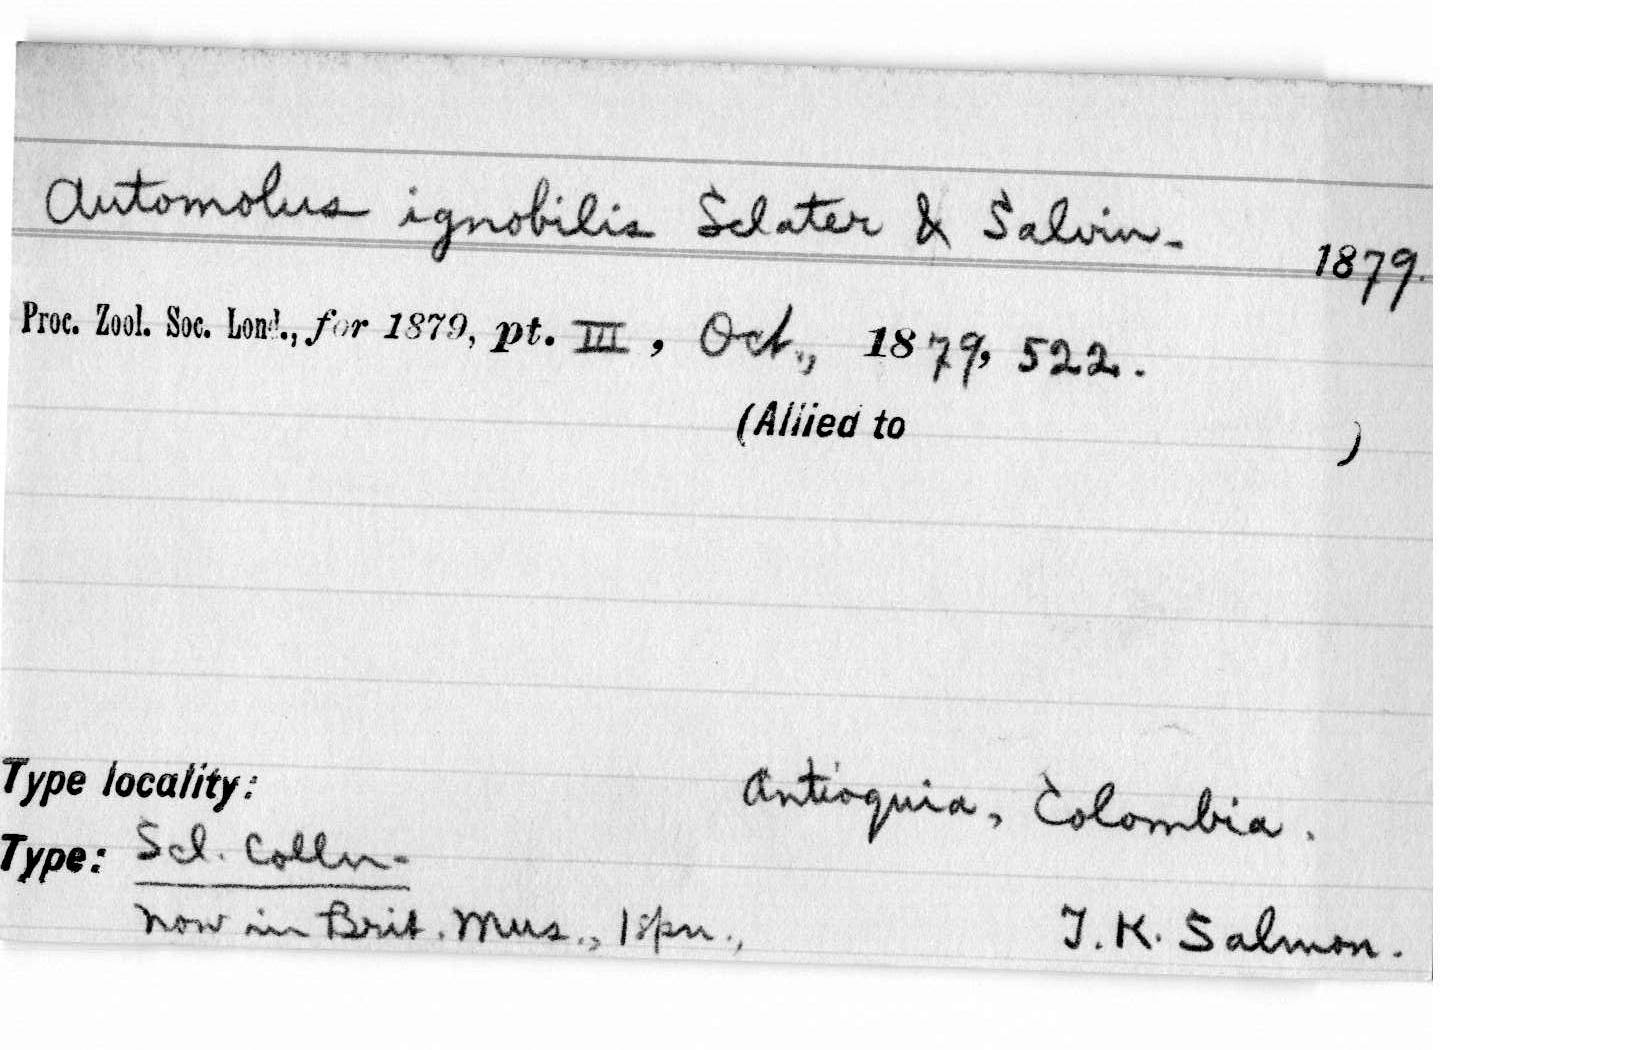 Automolus ignobilis Sclater & Salvin- 1879.
Proc. Zool. Soc. Lond., for 1879, pt. III, Oct., 1879, 522.
(Allied to )
Type locality: Antioquia, Colombia.
Type: Scl. Colln-
now in Brit. Mus., 1 spn., T. K. Salmon.